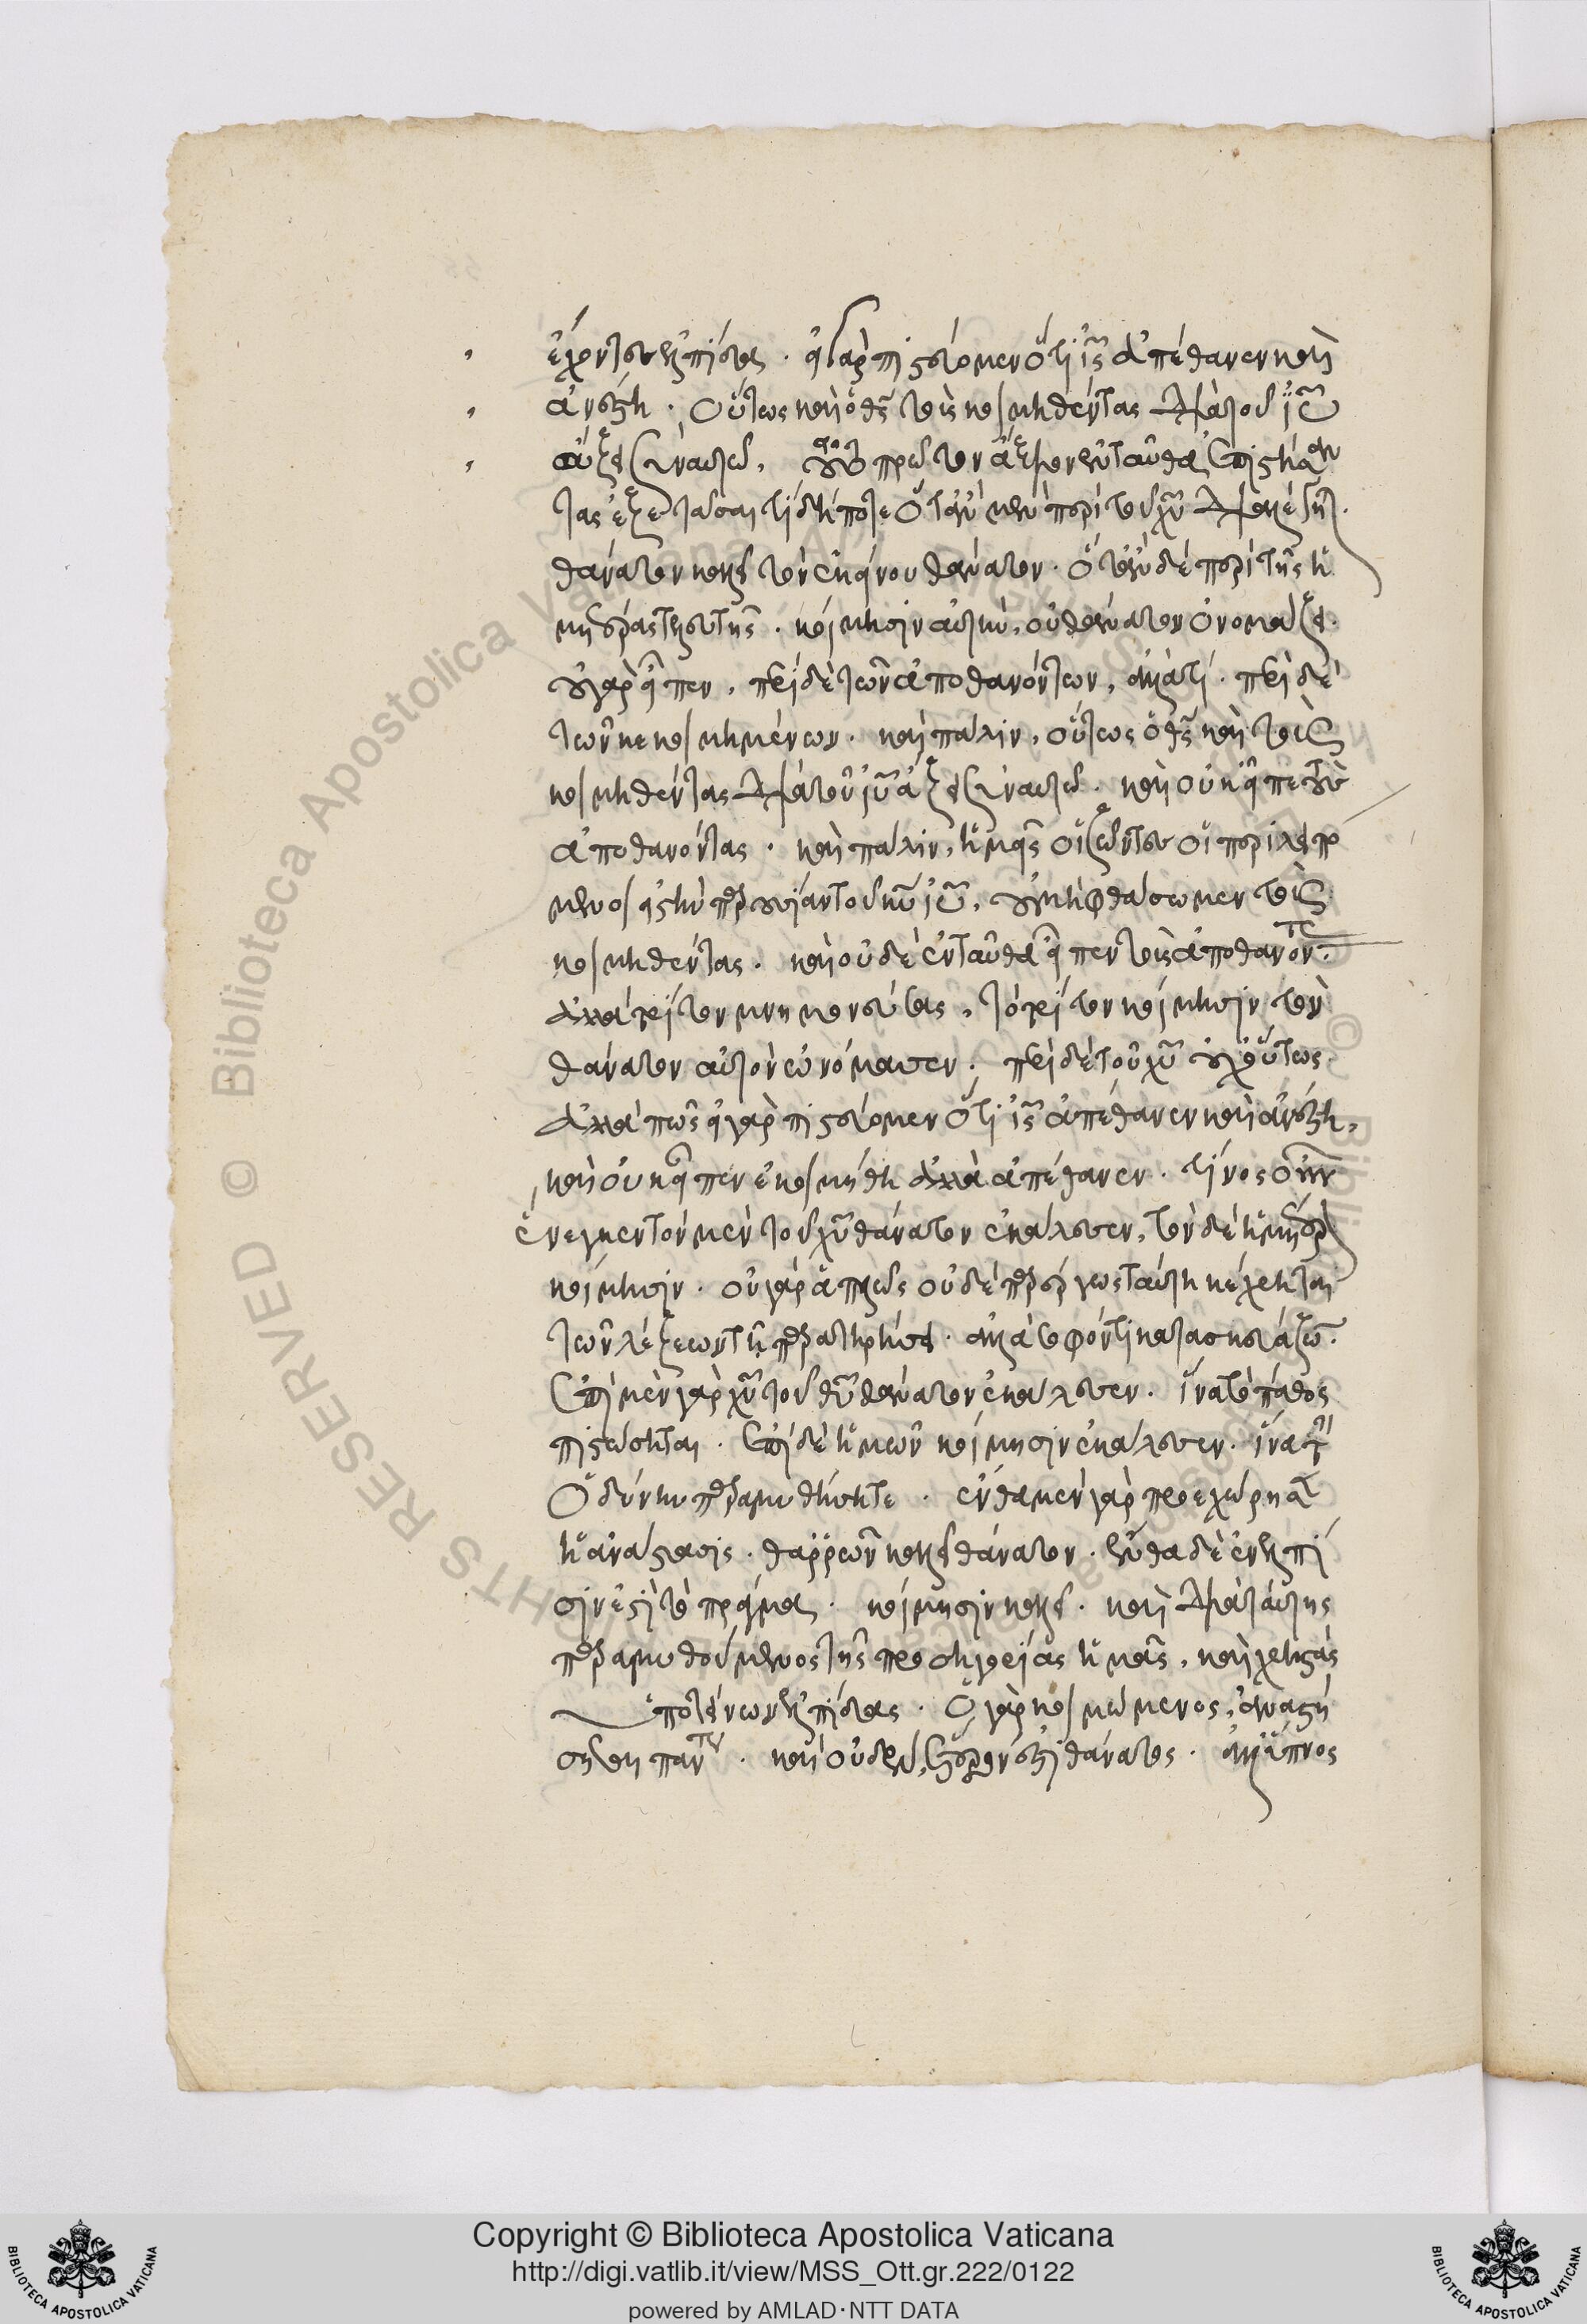 ἔχοντες ἐλπίδας. εἰ γὰρ πιστεύομεν ὅτι ἰς ἀπέθανεν καὶ
ἀνέστη. οὕτως καὶ ὁ θς τοὺς κοιμηθέντας διὰ τοῦ ιυ
ἄξει σὺν αὐτῷ. τοῦτο πρῶτον ἄξιον ἐνταῦθα ἐπιστήσαν
τας ἐξετάσαι τί δήποτε ὅταν μὲν περὶ τοῦ χυ διαλέγηται
θάνατον καλεῖ τὸν ἐκείνου θάνατον. ὅταν δὲ περὶ τῆς ἡ
μετέρας τελευτῆς. κοίμησιν αὐτὴν, οὐ θάνατον ὀνομάζει.
οὐ γὰρ εἶπεν, περὶ δὲ τῶν ἀποθανόντων, ἀλλὰ τί. περὶ δὲ
τῶν κεκοιμημένων. καὶ πάλιν, οὕτως ὁ θς καὶ τοὺς
κοιμηθέντας διὰ τοῦ ιυ ἄξει σὺν αὐτῷ. καὶ οὐκ εἶπε τοὺς
ἀποθανόντας. καὶ πάλιν, ἡμεῖς οἱ ζῶντες οἱ περιλειπό
μενοι εἰς τὴν παρουσίαν τοῦ κυ ιυ, οὐ μὴ φθάσωμεν τοὺς
κοιμηθέντας. καὶ οὐδὲ ἐνταῦθα εἶπεν τοὺς ἀποθανόντας.
ἀλλὰ τρίτον μνημονεύσας, τὸ τρίτον κοίμησιν τὸν
θάνατον αὐτὸν ὠνόμασεν. περὶ δὲ τοῦ χυ οὐχ οὕτως
ἀλλὰ πῶς εἰ γὰρ πιστεύομεν ὅτι ἰς ἀπέθανεν καὶ ἀνέστη,
καὶ οὐκ εἶπεν ἐκοιμήθη ἀλλὰ ἀπέθανεν. τίνος οὖν
ἕνεκεν τὸν μὲν τοῦ χυ θάνατον ἐκάλεσεν, τὸν δὲ ἡμέτερον
κοίμησιν. οὐ γὰρ ἁπλῶς οὐδὲ παρέργως ταύτῃ κέχρηται
τῶν λέξεων τῇ παρατηρήσει. ἀλλὰ σοφόν τι κατασκευάζων.
ἐπὶ μὲν γὰρ χυ τοῦ θυ θάνατον ἐκάλεσεν. ἵνα τὸ πάθος
πιστώσηται. ἐπὶ δὲ ἡμῶν κοίμησιν ἐκάλεσεν. ἵνα τὴν
ὀδύνην παραμυθήσηται. ἔνθα μὲν γὰρ προεχώρησεν
ἡ ἀνάστασις. θαρρῶν καλεῖ θάνατον. ἔνθα δὲ ἐν ἐλπί
σιν ἐστὶ τὸ πρᾶγμα. κοίμησιν καλεῖ. καὶ διὰ ταύτης
παραμυθούμενος τῆς προσηγορίας ἡμᾶς, καὶ χρηστὰς
ὑποτείνων ἐλπίδας. ὁ γὰρ κοιμώμενος, ἀναστή
σεται πάντως. καὶ οὐδὲν ἕτερόν ἐστι θάνατος. ἀλλ ὕπνος
Copyright © Biblioteca Apostolica Vaticana
http://digi.vatlib.it/view/MSS_Ott.gr.222/0122
powered by AMLAD·NTT DATA